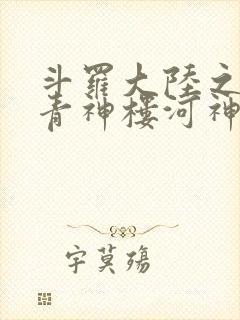 斗羅大陸之
青神樓河神
宇莫殤